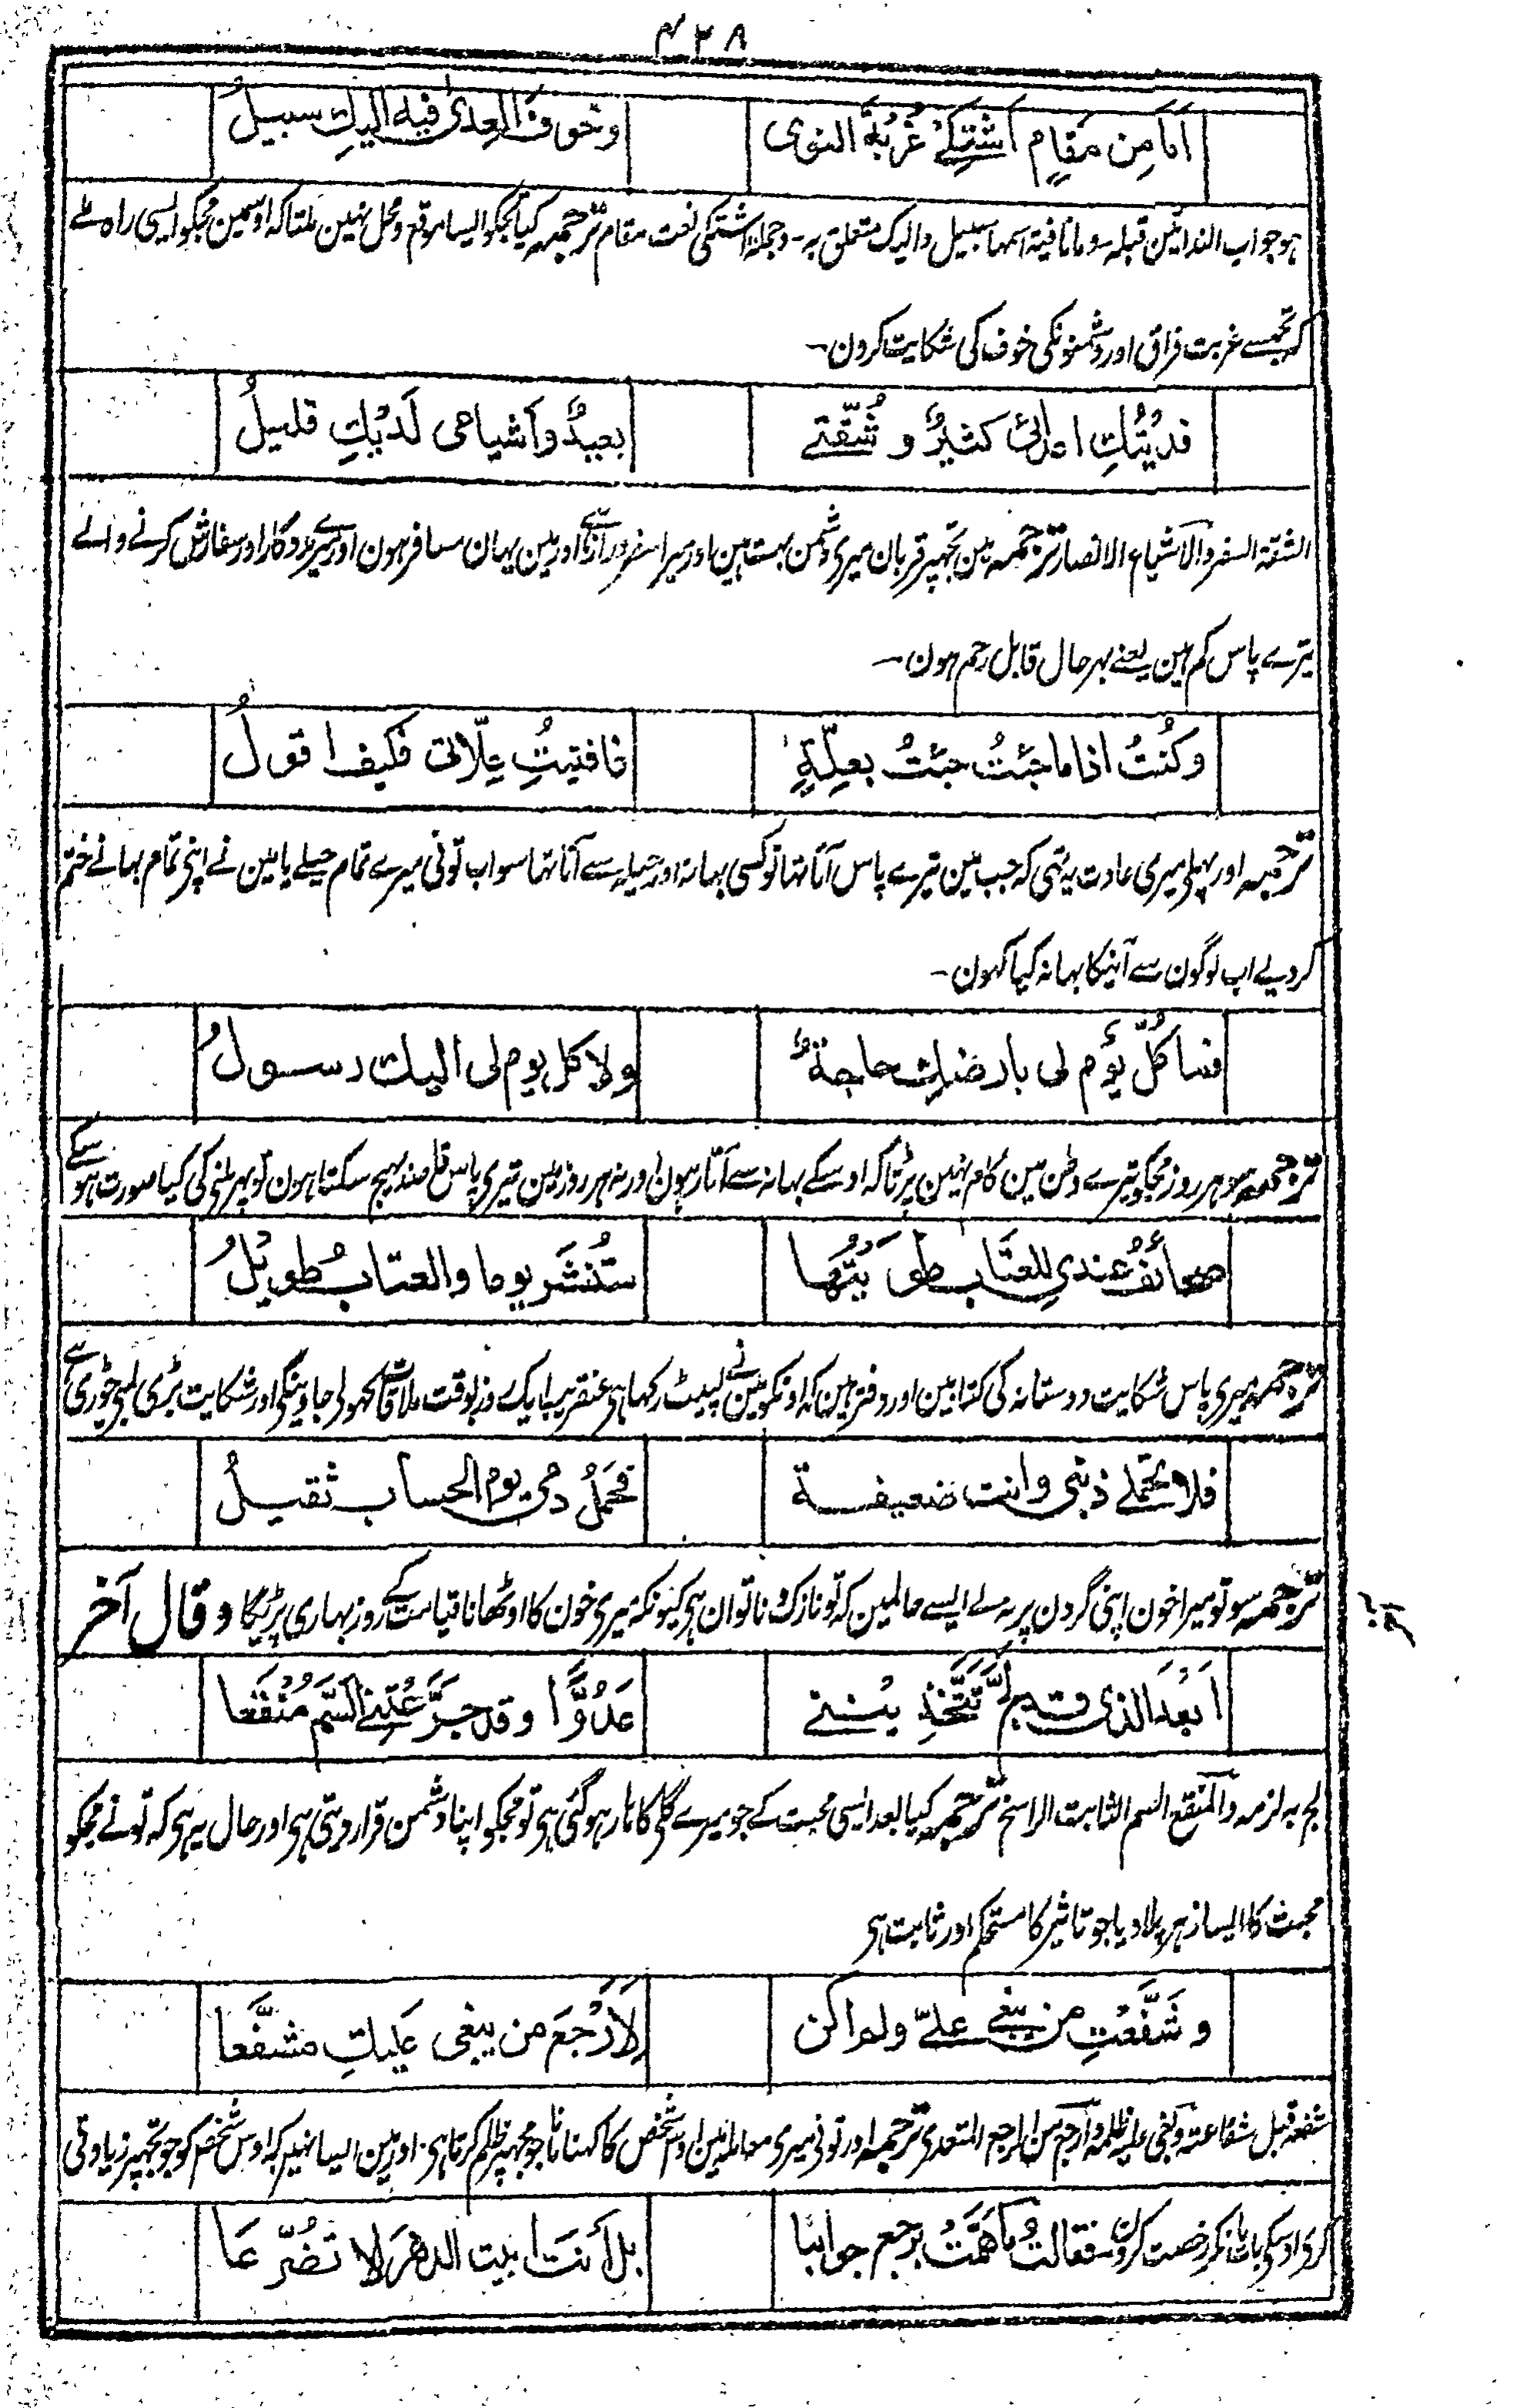 ۴۳۸
اَمَا مِن مَقامٍ اَشتكے غُربةَ النوى وخوفَ العِدىٰ فيه اليكِ سبيلُ
ہو جواب الندا تبین قبلہ وما نافیۃ اسمہا سبیل والیک متعلق بہ۔ وجملۃ اشتکی نعت مقام ترجمہ کیا مجکو ایسا موقع ومحل نہین ملتا کہ اوسمین مجکو ایسی راہ ملے
کہ تجھسے غربت فراق اور دشمنونکی خوف کی شکایت کرون۔
فديتُكِ اعدائى كثيرٌ و شُقّتے بعيدٌ وَاَشياعى لَدَيْكِ قليلُ
الشقۃ السفر والاشیاع الانصار ترجمہ مین تجھپر قربان میری دشمن بہت ہین اور میرا سفر دراز ہے اور مین یہان مسافر ہون اور میرے مددگار اور سفارش کرنے والے
تیرے پاس کم ہین یعنے بہر حال قابل رحم ہون۔
وكُنتُ اذا ما جئتُ جئتُ بعِلّةٍ فافنيتِ عِلّاتى فكيف اقولُ
ترجمہ اور پہلے میری عادت یہ تہی کہ جب مین تیرے پاس آتا تہا تو کسی بہانہ اور حیلہ سے آتا تہا سو اب تونی میرے تمام حیلے یا مین نے اپنی تمام بہانے ختم
کر دیے اب لوگون سے آنیکا بہانہ کیا کہون۔
فما كلُّ يَوْمٍ لى بارضكِ حاجةٌ ولا كل يوم لى اليك رسولُ
ترجمہ سو ہر روز مجکو تیرے وطن مین کام نہین پڑتا کہ اوسکے بہانہ سے آتا رہون اور نہ ہر روز مین تیری پاس قاصد بہیج سکتا ہون تو پہر ملنی کی کیا صورت ہوسکے
صحائفُ عندى للعتاب طَوَيتُها ستُنشَر يوما والعتابُ طويلُ
ترجمہ میری پاس شکایت دوستانہ کی کتابین اور دفتر ہین کہ اونکو مین نے لپیٹ رکہا ہی عنقریب ایک روز بوقت ملاقات کہولی جاوینگی اور شکایت بڑی لمبی چوڑی ہے
فلا تحملے ذنبى وانت ضعيفة فحَملُ دمى يوم الحساب ثقيلُ
ترجمہ سو تو میرا خون اپنی گردن پر نہ لے ایسے حالمین کہ تو نازک و ناتوان ہی کیونکہ میری خون کا اوٹھانا قیامت کے روز بہاری پڑیگا وقال آخر
اَبَعدَ الذى قد لجَّ تَتَّخِذِيننے عَدُوًّا وقد جرَّعْتِنے السّم مُنْقَعا
لج بہ لزمہ والمنقع السم الثابت الراسخ ترجمہ کیا بعد ایسی محبت کے جو میرے گلی کا ہار ہو گئی ہی تو مجکو اپنا دشمن قرار دیتی ہی اور حال یہ ہی کہ تونے مجکو
محبت کا ایسا زہر پلا دیا جو تاثیر کا مستحکم اور ثابت ہی
وشَفَّعتِ من يبغى علىّ ولم اكن لِاُرْجِعَ من يبغى عليكِ مشفَّعا
شفعہ قبل شفاعتہ وبغی علیہ ظلمہ وارجع من الرجع المتعدی ترجمہ اور تونی میری معاملہ مین اوس شخص کا کہنا مانا جو مجھپر ظلم کرتا ہی اور مین ایسا نہین کہ اوس شخص کو جو تجھپر زیادتی
کری اوسکی بات مانکر رخصت کرون فقالت وما هَمَّتْ برجع جوابنا بل اَنتَ ابيت الدهرَ الا تضرّعا